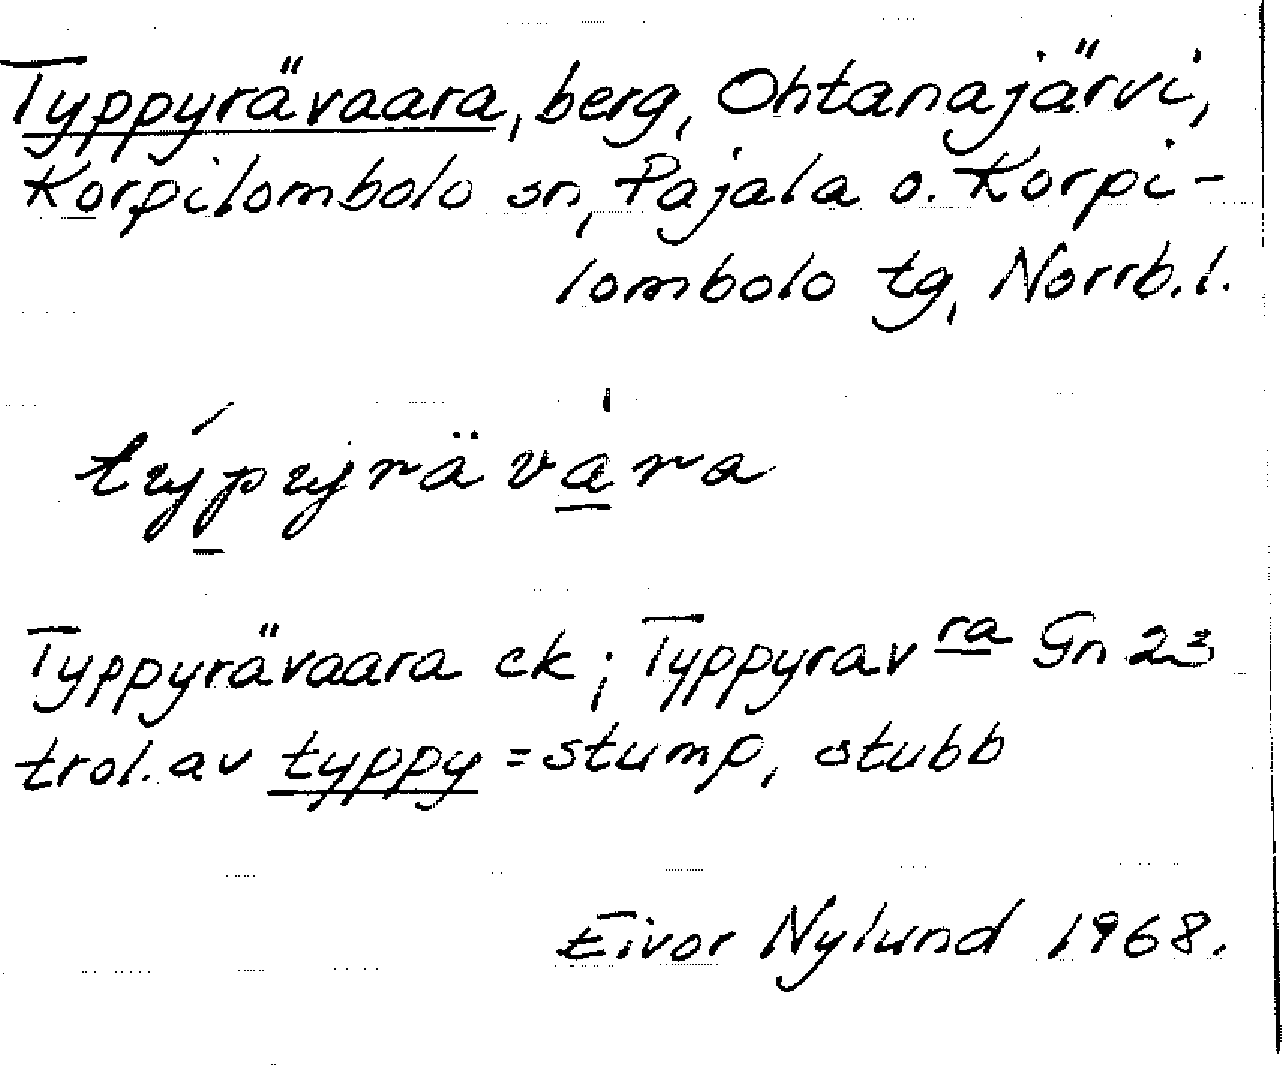 Typpyrävaara, berg, Ohtanajärvi,
Korpilombolo sn, Pajala o. Korpi-
lombolo tg, Norrb. l.
týpyrävàra
Typpyrävaara ek; Typpyrav ra Gn 23
trol. av typpy = stump, stubb
Eivor Nylund 1968.